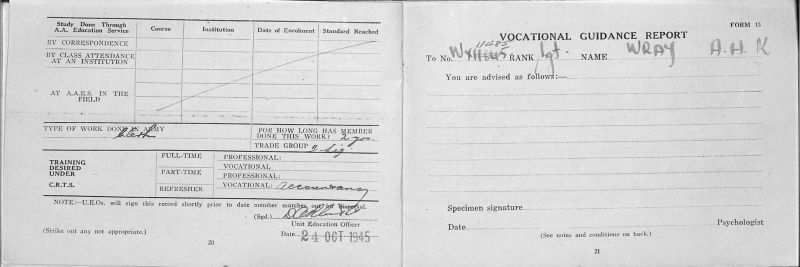 Study Done Through
A.A. Education Service
Course
Institution
Date of Enrolment
Standard Reached
BY CORRESPONDENCE
BY CLASS ATTENDANCE
AT AN INSTITUTION
AT A.A.E.S. IN THE
FIELD
TYPE OF WORK DONE IN ARMY
Clerk
FOR HOW LONG HAS MEMBER
DONE THIS WORK? 2 yrs.
TRADE GROUP
TRAINING
DESIRED
UNDER
C.R.T.S.
FULL-TIME
PROFESSIONAL:
VOCATIONAL
PART-TIME
PROFESSIONAL:
REFRESHER
VOCATIONAL: accountancy
NOTE:—U.E.Os. will sign this record shortly prior to date member marches out for disposal.
(Sgd.)
Unit Education Officer
(Strike out any not appropriate.)
Date 24 OCT 1945
20
FORM 15
VOCATIONAL GUIDANCE REPORT
11485
To No. WX RANK Sgt. NAME WRAY A.H.K
You are advised as follows:—
Specimen signature
Date
Psychologist
(See notes and conditions on back.)
21